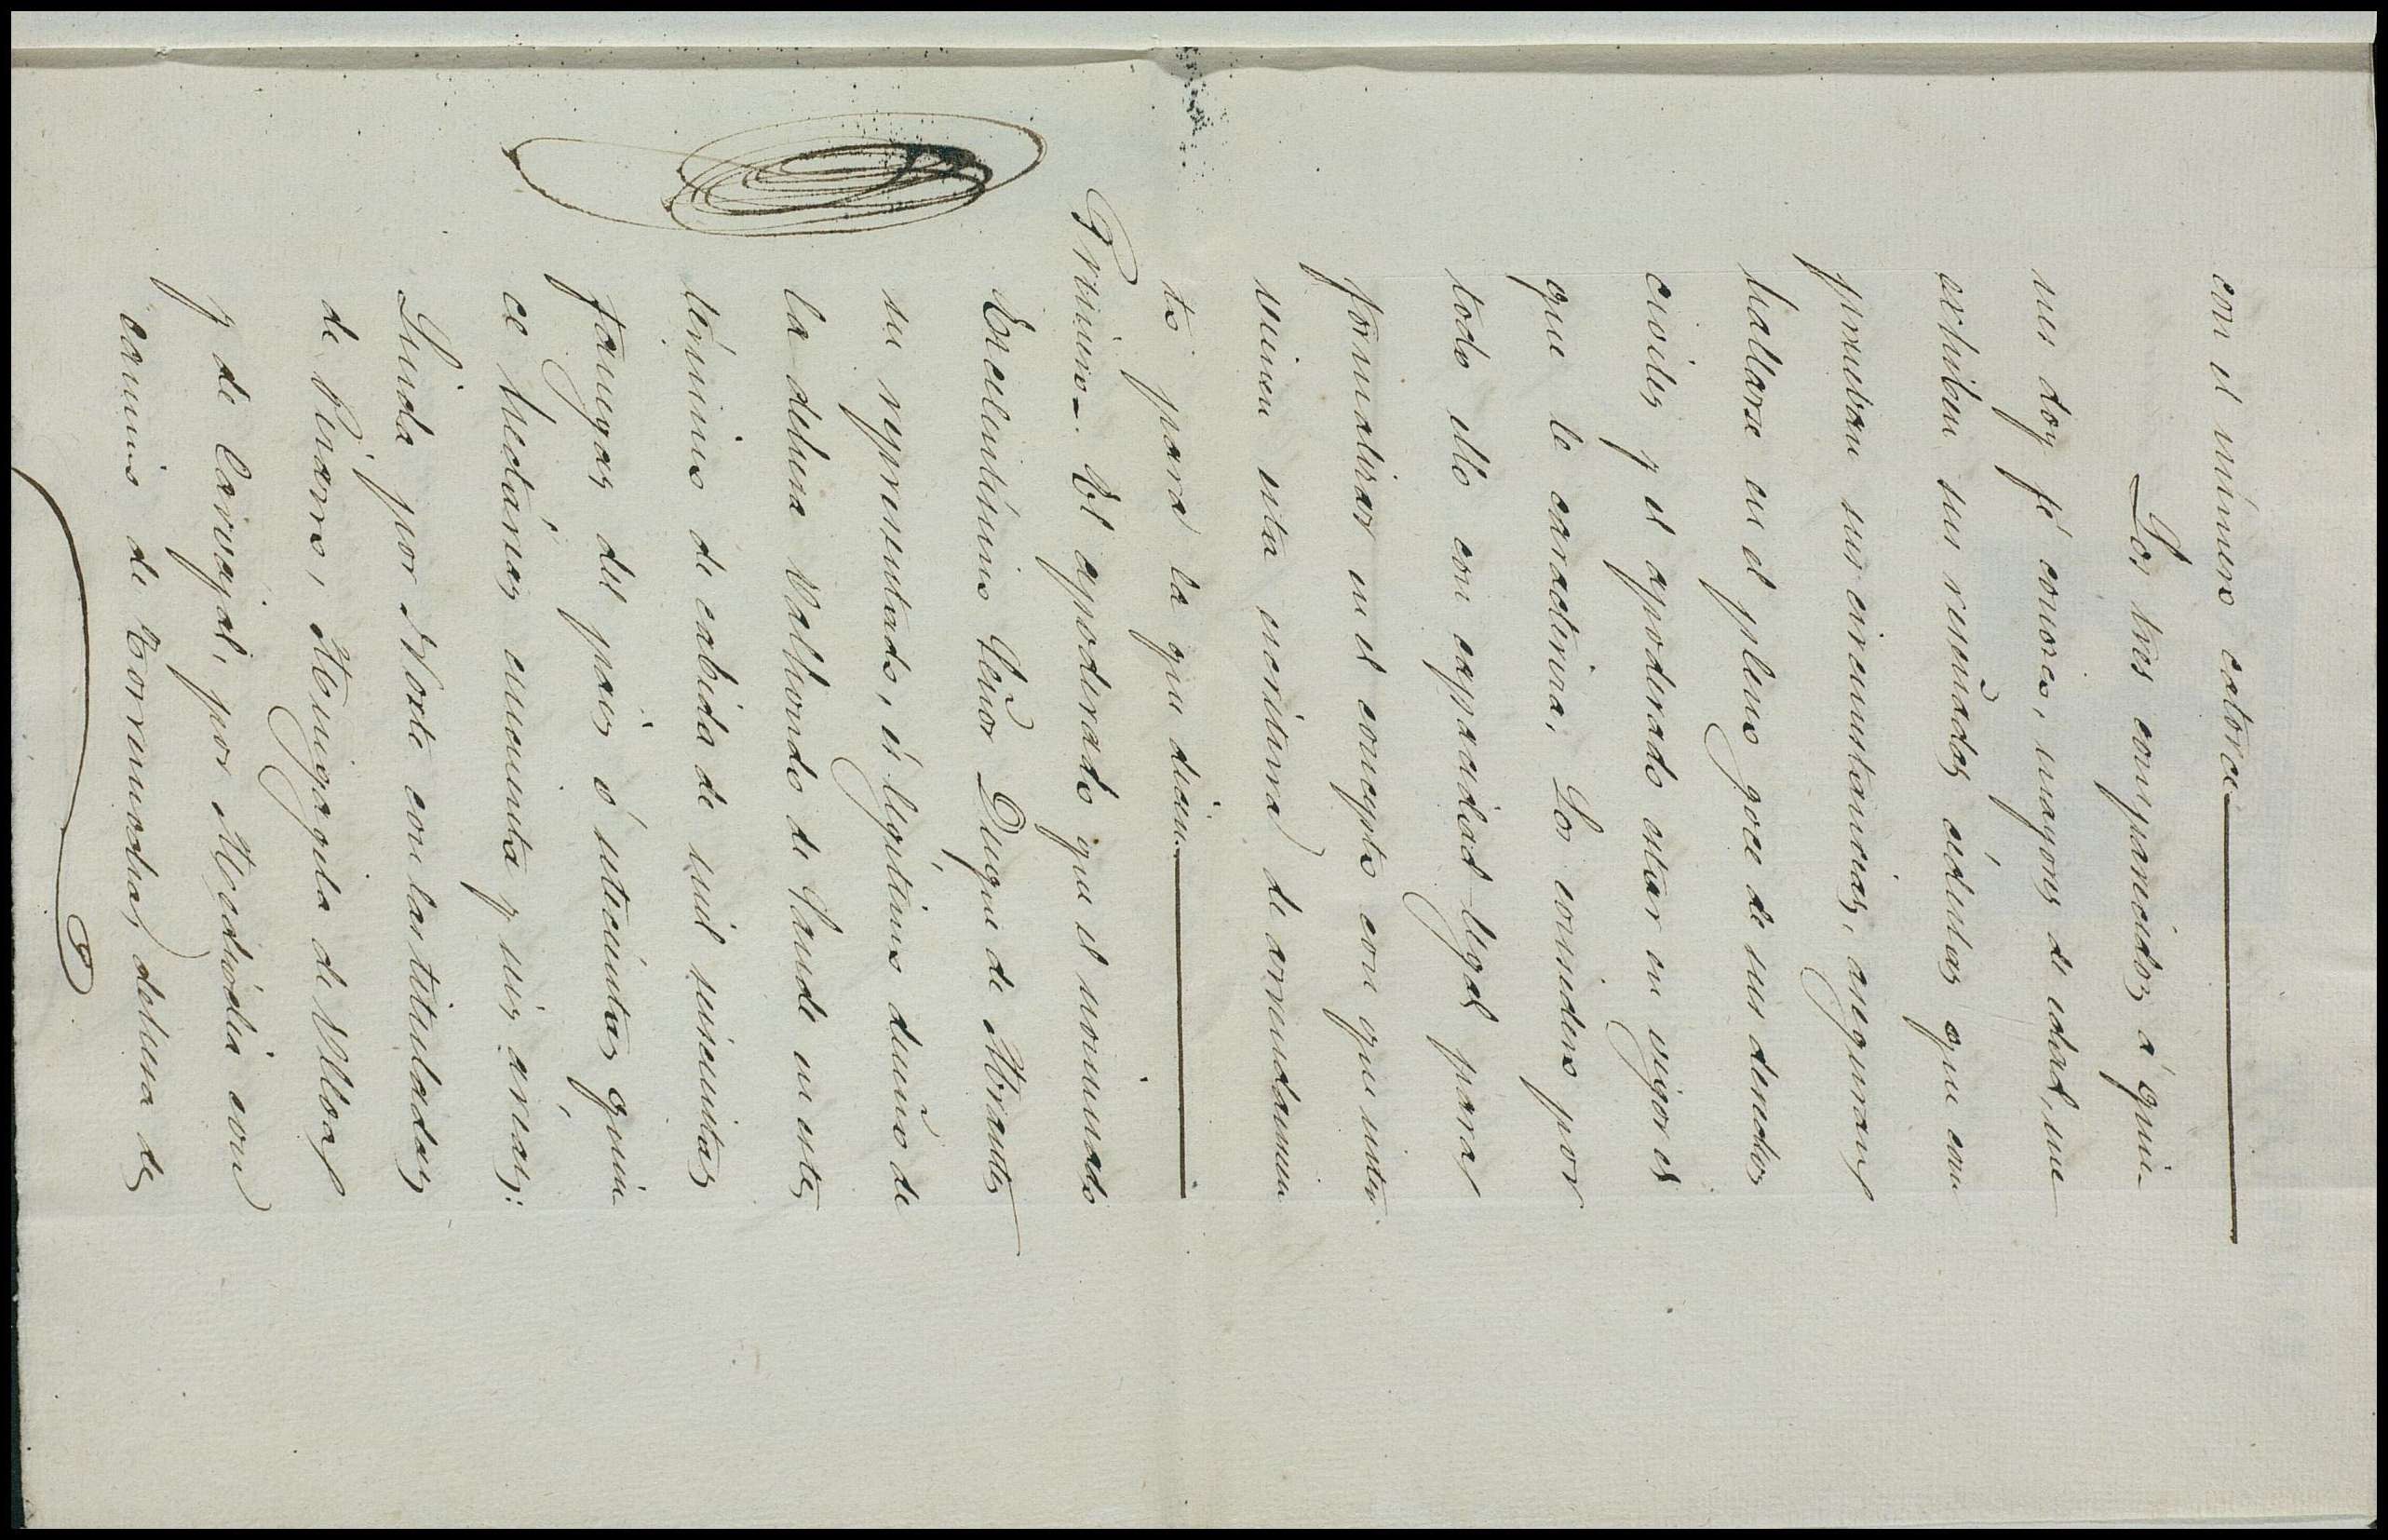 con el número catorce
Los tres comparecidos á quie-
nes doy fé conozco, mayores de edad, me
exhiben sus reseñadas cédulas que com
prueban sus circunstancias, aseguran
hallarse en el pleno goce de sus derechos
civiles y el apoderado estar en vigor el
que le caracteriza. Los considero por
todo ello con capacidad legal para
formalizar en el concepto con que inter
vienen esta escritura de arrendamien
to para la que dicen:
Primero-. El apoderado que el nominado
Excelentísimo Señor Duque de Abrantes
su representado, es legítimo dueño de
la dehesa Valhondo de Sande en este
término de cabida de mil seiscientas
fanegas del pais ó utecientas quin
ce hectáreas cincuenta y seis áreas:
Linda por Norte con las tituladas
de Pizarro, Moheda de Ulloa
y de Carvajal, por Mediodia con
camino de Torremocha, dehesa de